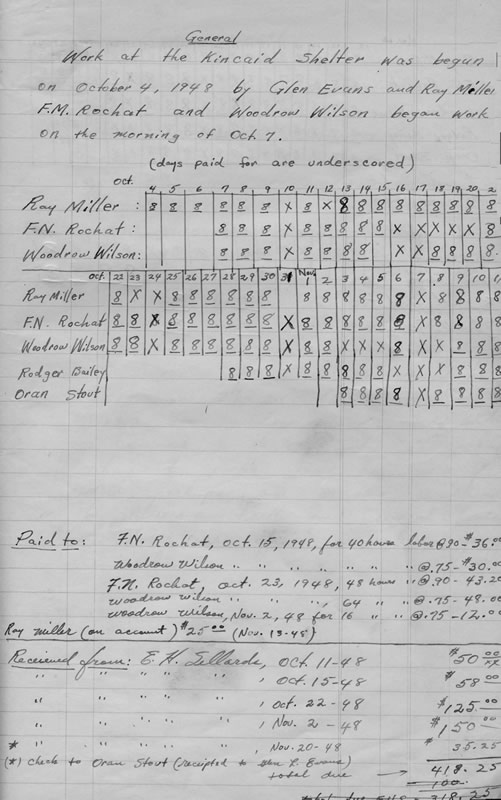 General
Work at the Kincaid Shelter was begun
on October 4, 1948 by Glen Evans and Ray Miller
F.M. Rochat and Woodrow Wilson began work
on the morning of Oct. 7.
(days paid for are underscored)
Oct. 4 5 6 7 8 9 10 11 12 13 14 15 16 17 18 19 20 2
Ray Miller: 8 8 8 8 8 8 X 8 X 8 8 8 8 8 8 8 8 8
F.N. Rochat: 8 8 8 X 8 8 8 8 8 X X X X X 8
Woodrow Wilson: 8 8 8 X 8 8 8 8 X X 8 8 8 8
Oct. 22 23 24 25 26 27 28 29 30 31 Nov. 1 2 3 4 5 6 7 8 9 10 1
Ray Miller 8 X X 8 8 8 8 8 8 8 8 8 8 8 8 X 8 8 8 8
F.N. Rochat 8 8 X 8 8 8 8 8 8 X 8 8 8 8 8 8 X 8 8 8 8
Woodrow Wilson 8 8 X 8 8 8 8 8 8 X 8 8 X X X 8 X X 8 8 8
Rodger Bailey 8 8 8 X 8 8 8 8 8 X X X 8 8 8
Oran Stout 8 8 8 8 X 8 8 8 8
Paid to: F.N. Rochat, Oct. 15, 1948, for 40 hours labor @ 90 - $36.00
Woodrow Wilson " " " " " " " @ .75 - $30.00
F.N. Rochat, Oct. 23, 1948, 48 hours " @ .90 - 43.20
Woodrow Wilson " " ", 64 " " @ .75 - 48.00
Woodrow Wilson, Nov. 2, 48 for 16 " " @ .75 - 12.00
Ray Miller (on account) $25.00 (Nov. 13-48)
Received from: E.H. Sellards, Oct. 11-48 $50.00
" " " " " , Oct. 15-48 $58.00
" " " " " , Oct. 22-48 $125.00
" " " " " , Nov. 2-48 $150.00
* " " " " " , Nov. 20-48 $35.25
(*) Check to Oran Stout (receipted to Glen L. Evans)
total due → 418.25
100.
total due 318.25